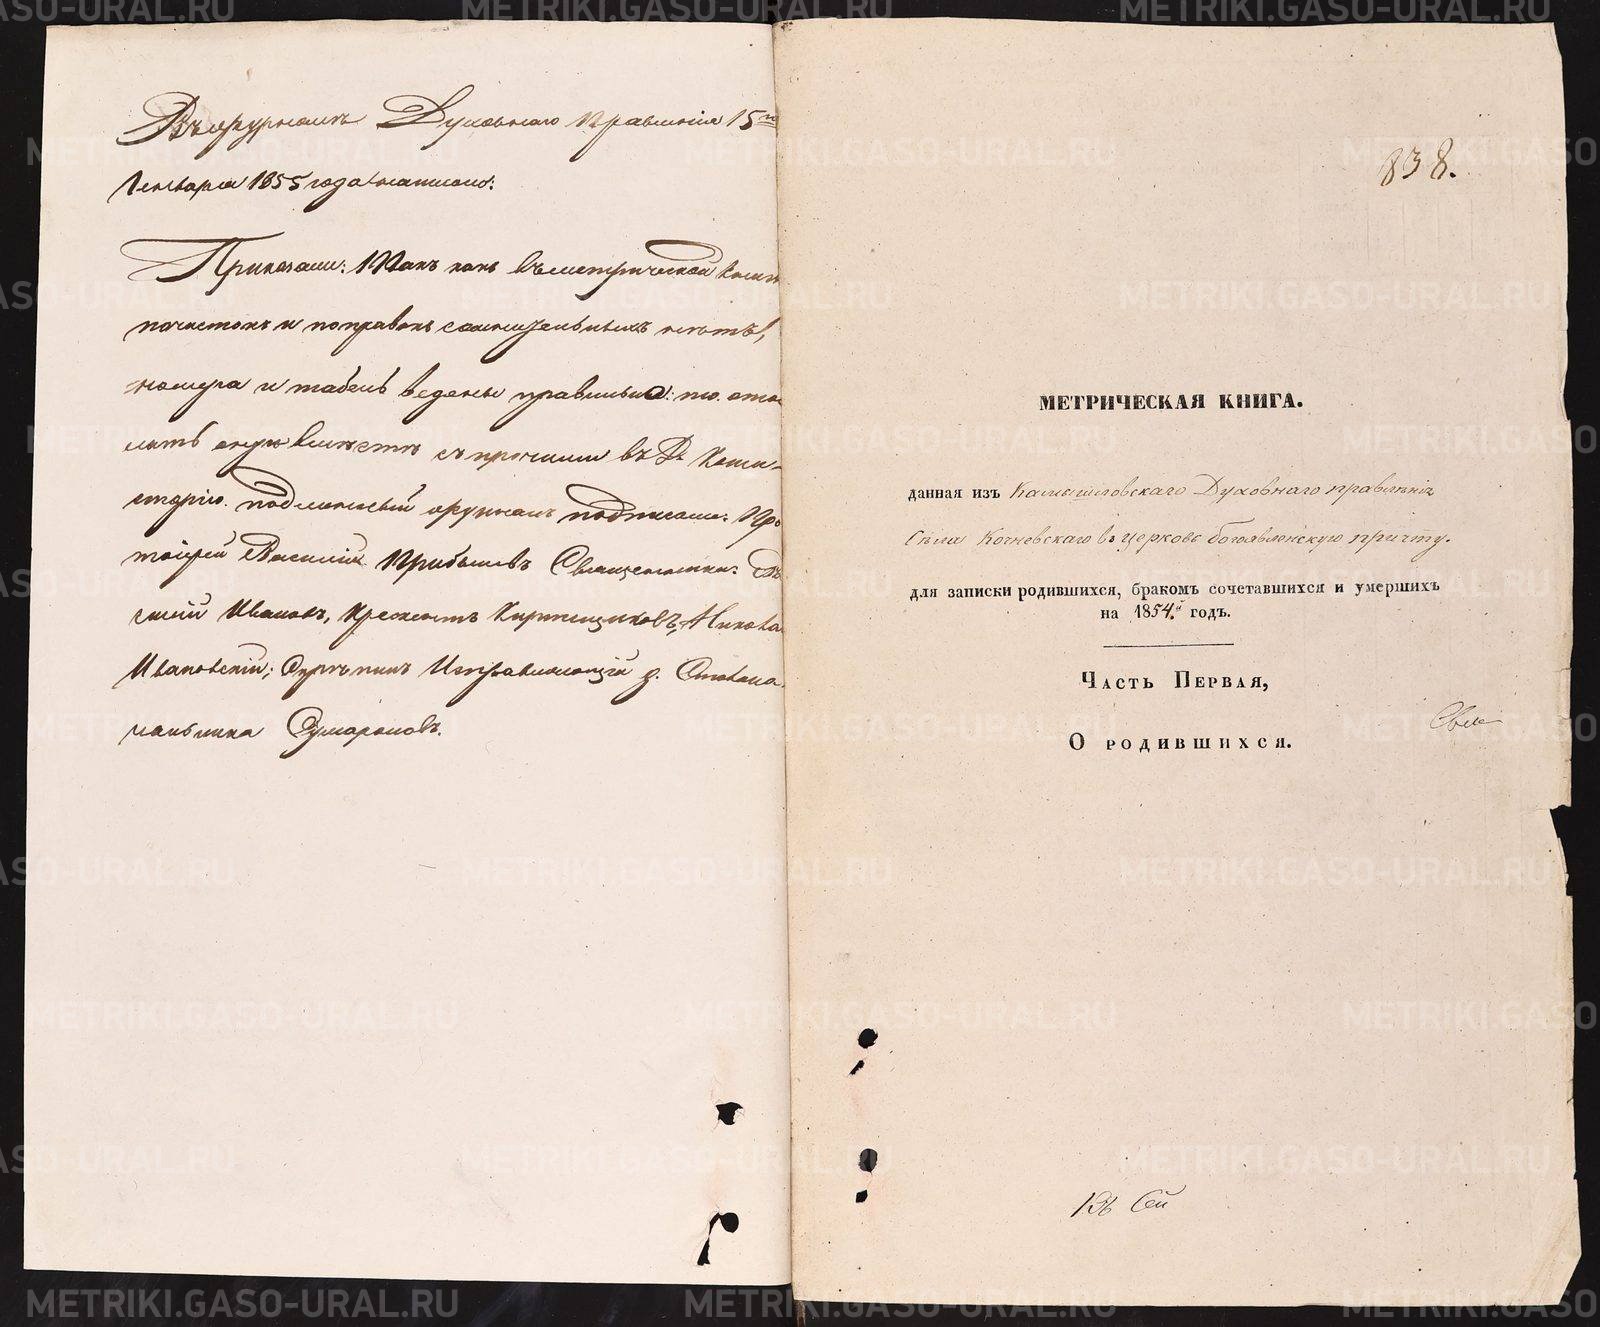 Въ журналѣ Духовнаго Правленія 15го
Генваря 1855 года написано:
Приказали: Какъ въ метрической
почистокъ и поправокъ сомнительныхъ нѣтъ,
номера и табель ведены правильно: то ото-
слать оную вмѣстѣ съ прочими въ Дх. Конси-
сторію. подлинный журналъ подписали: Про
тоіерей Василій Прибылевъ Священники:
Ивановъ, Кирпищиковъ,
Ивановскій;
чальника Сумароковъ.
838.
МЕТРИЧЕСКАЯ КНИГА.
данная изъ Камышловскаго Духовнаго правленія
Села Кочневскаго въ церковь богоявленскую причту.
для записки родившихся, бракомъ сочетавшихся и умершихъ
на 1854.й годъ.
ЧАСТЬ ПЕРВАЯ,
О РОДИВШИХСЯ.
METRIKI.GASO-URAL.RU